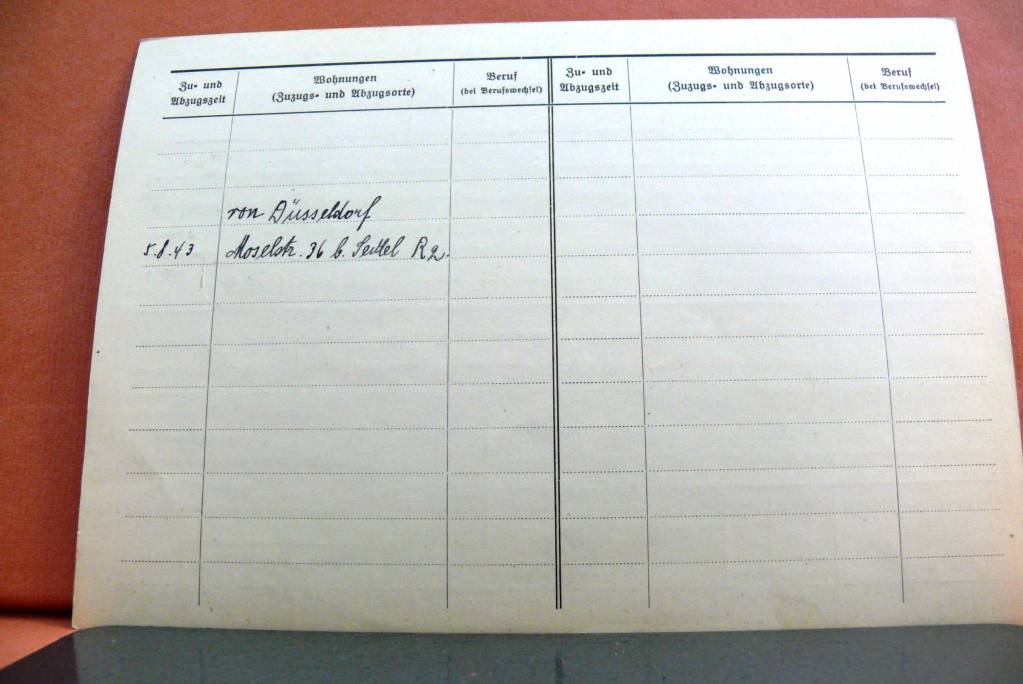 Zu- und Abzugszeit
Wohnungen
(Zuzugs- und Abzugsorte)
Beruf
(bei Berufswechsel)
Zu- und Abzugszeit
Wohnungen
(Zuzugs- und Abzugsorte)
Beruf
(bei Berufswechsel)
von Düsseldorf
5.8.43 Moselstr. 36 b. Seidel